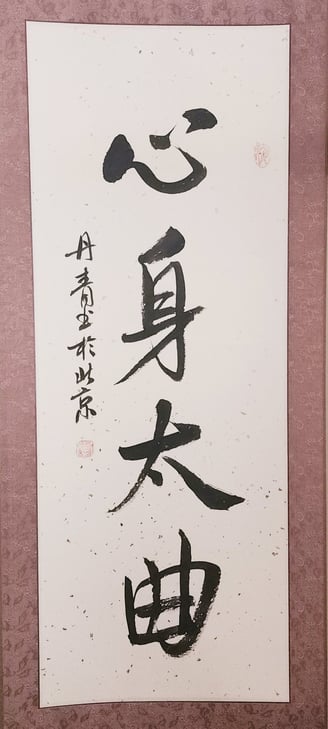 心身太曲
丹青书於北京